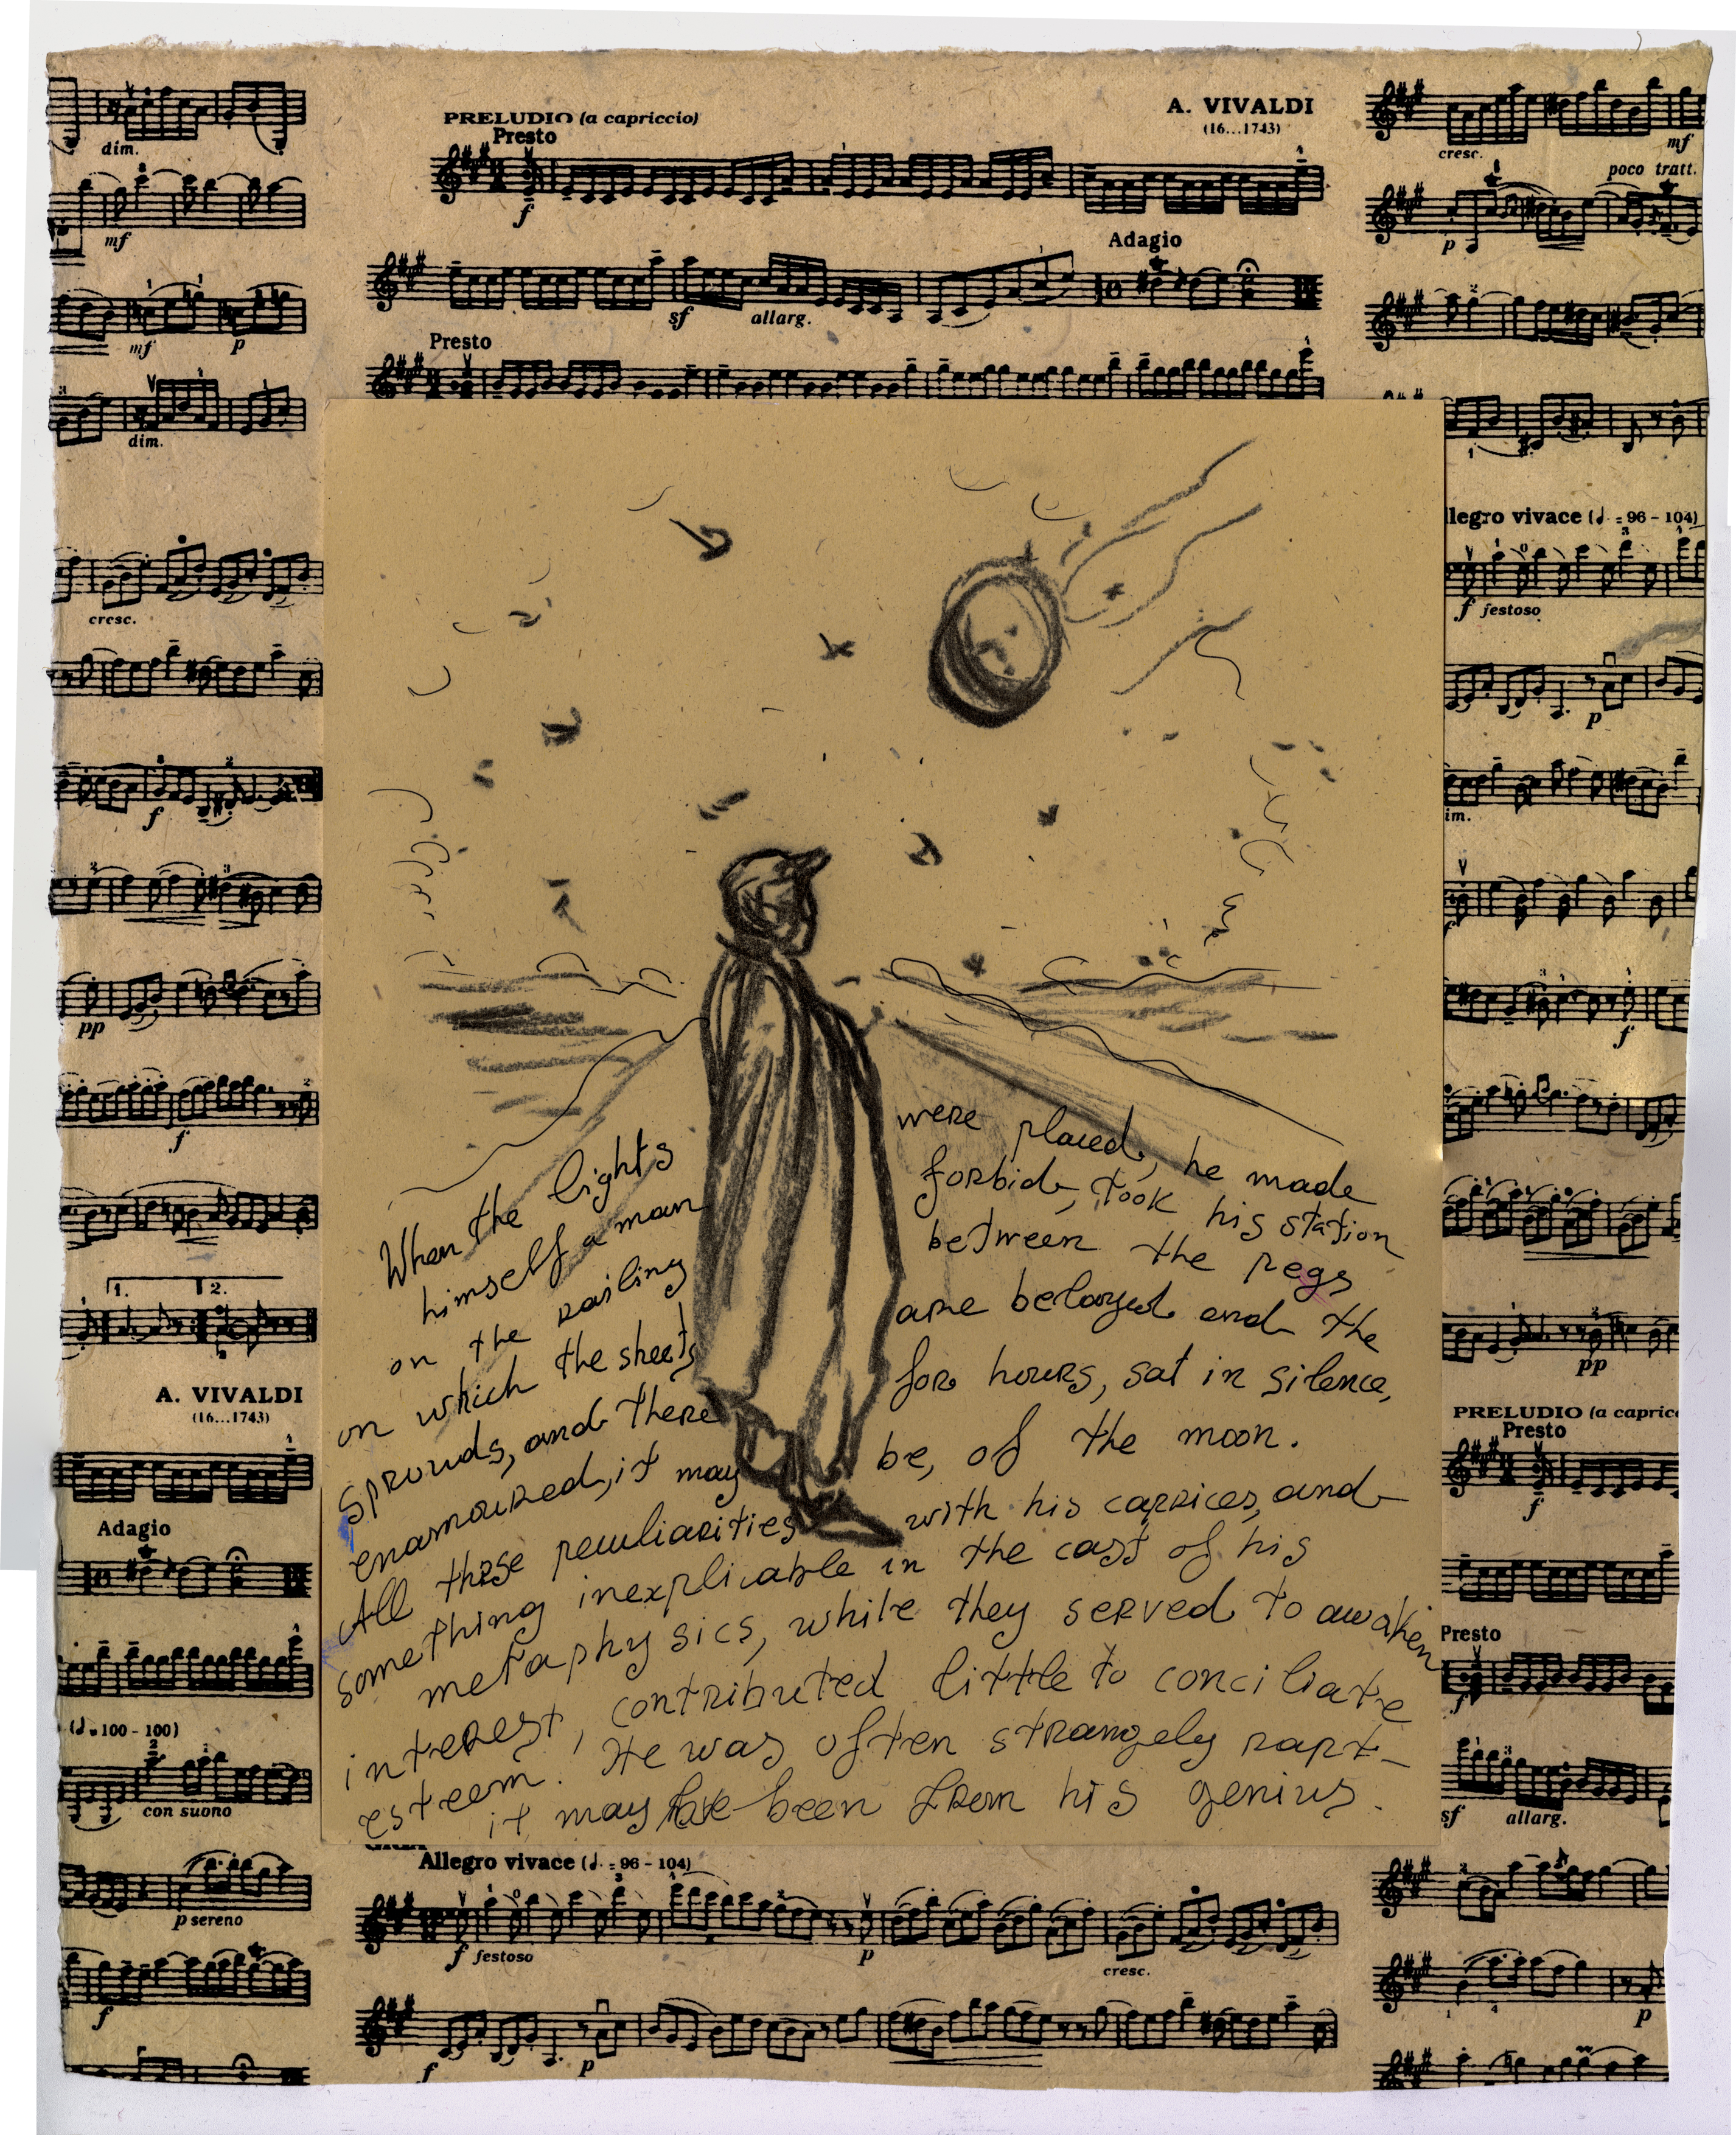 dim.
PRELUDIO (a capriccio)
Presto
A. VIVALDI
(16...1743)
f
cresc.
mf
poco tratt.
p
mf
Adagio
sf allarg.
mf p
Presto
dim.
When the lights were placed, he made
himself a man forbid, took his station
on the railing between the pegs
on which the sheets are belayed and the
sprouds, and there for hours, sat in silence,
enamoured, it may be, of the moon.
All these peculiarities with his caprices, and
something inexplicable in the cast of his
metaphysics, while they served to awaken
interest, contributed little to conciliate
esteem. He was often strangely rapt-
it may have been from his genius.
cresc.
f
pp
f
1. 2.
A. VIVALDI
(16...1743)
Adagio
(♩=100-100)
con suono
p sereno
f
llegro vivace (♩. = 96 - 104)
f festoso
p
im.
f
pp
PRELUDIO (a capric
Presto
f
Presto
f
sf allarg.
p
Allegro vivace (♩. = 96 - 104)
f festoso
p
cresc.
f
p